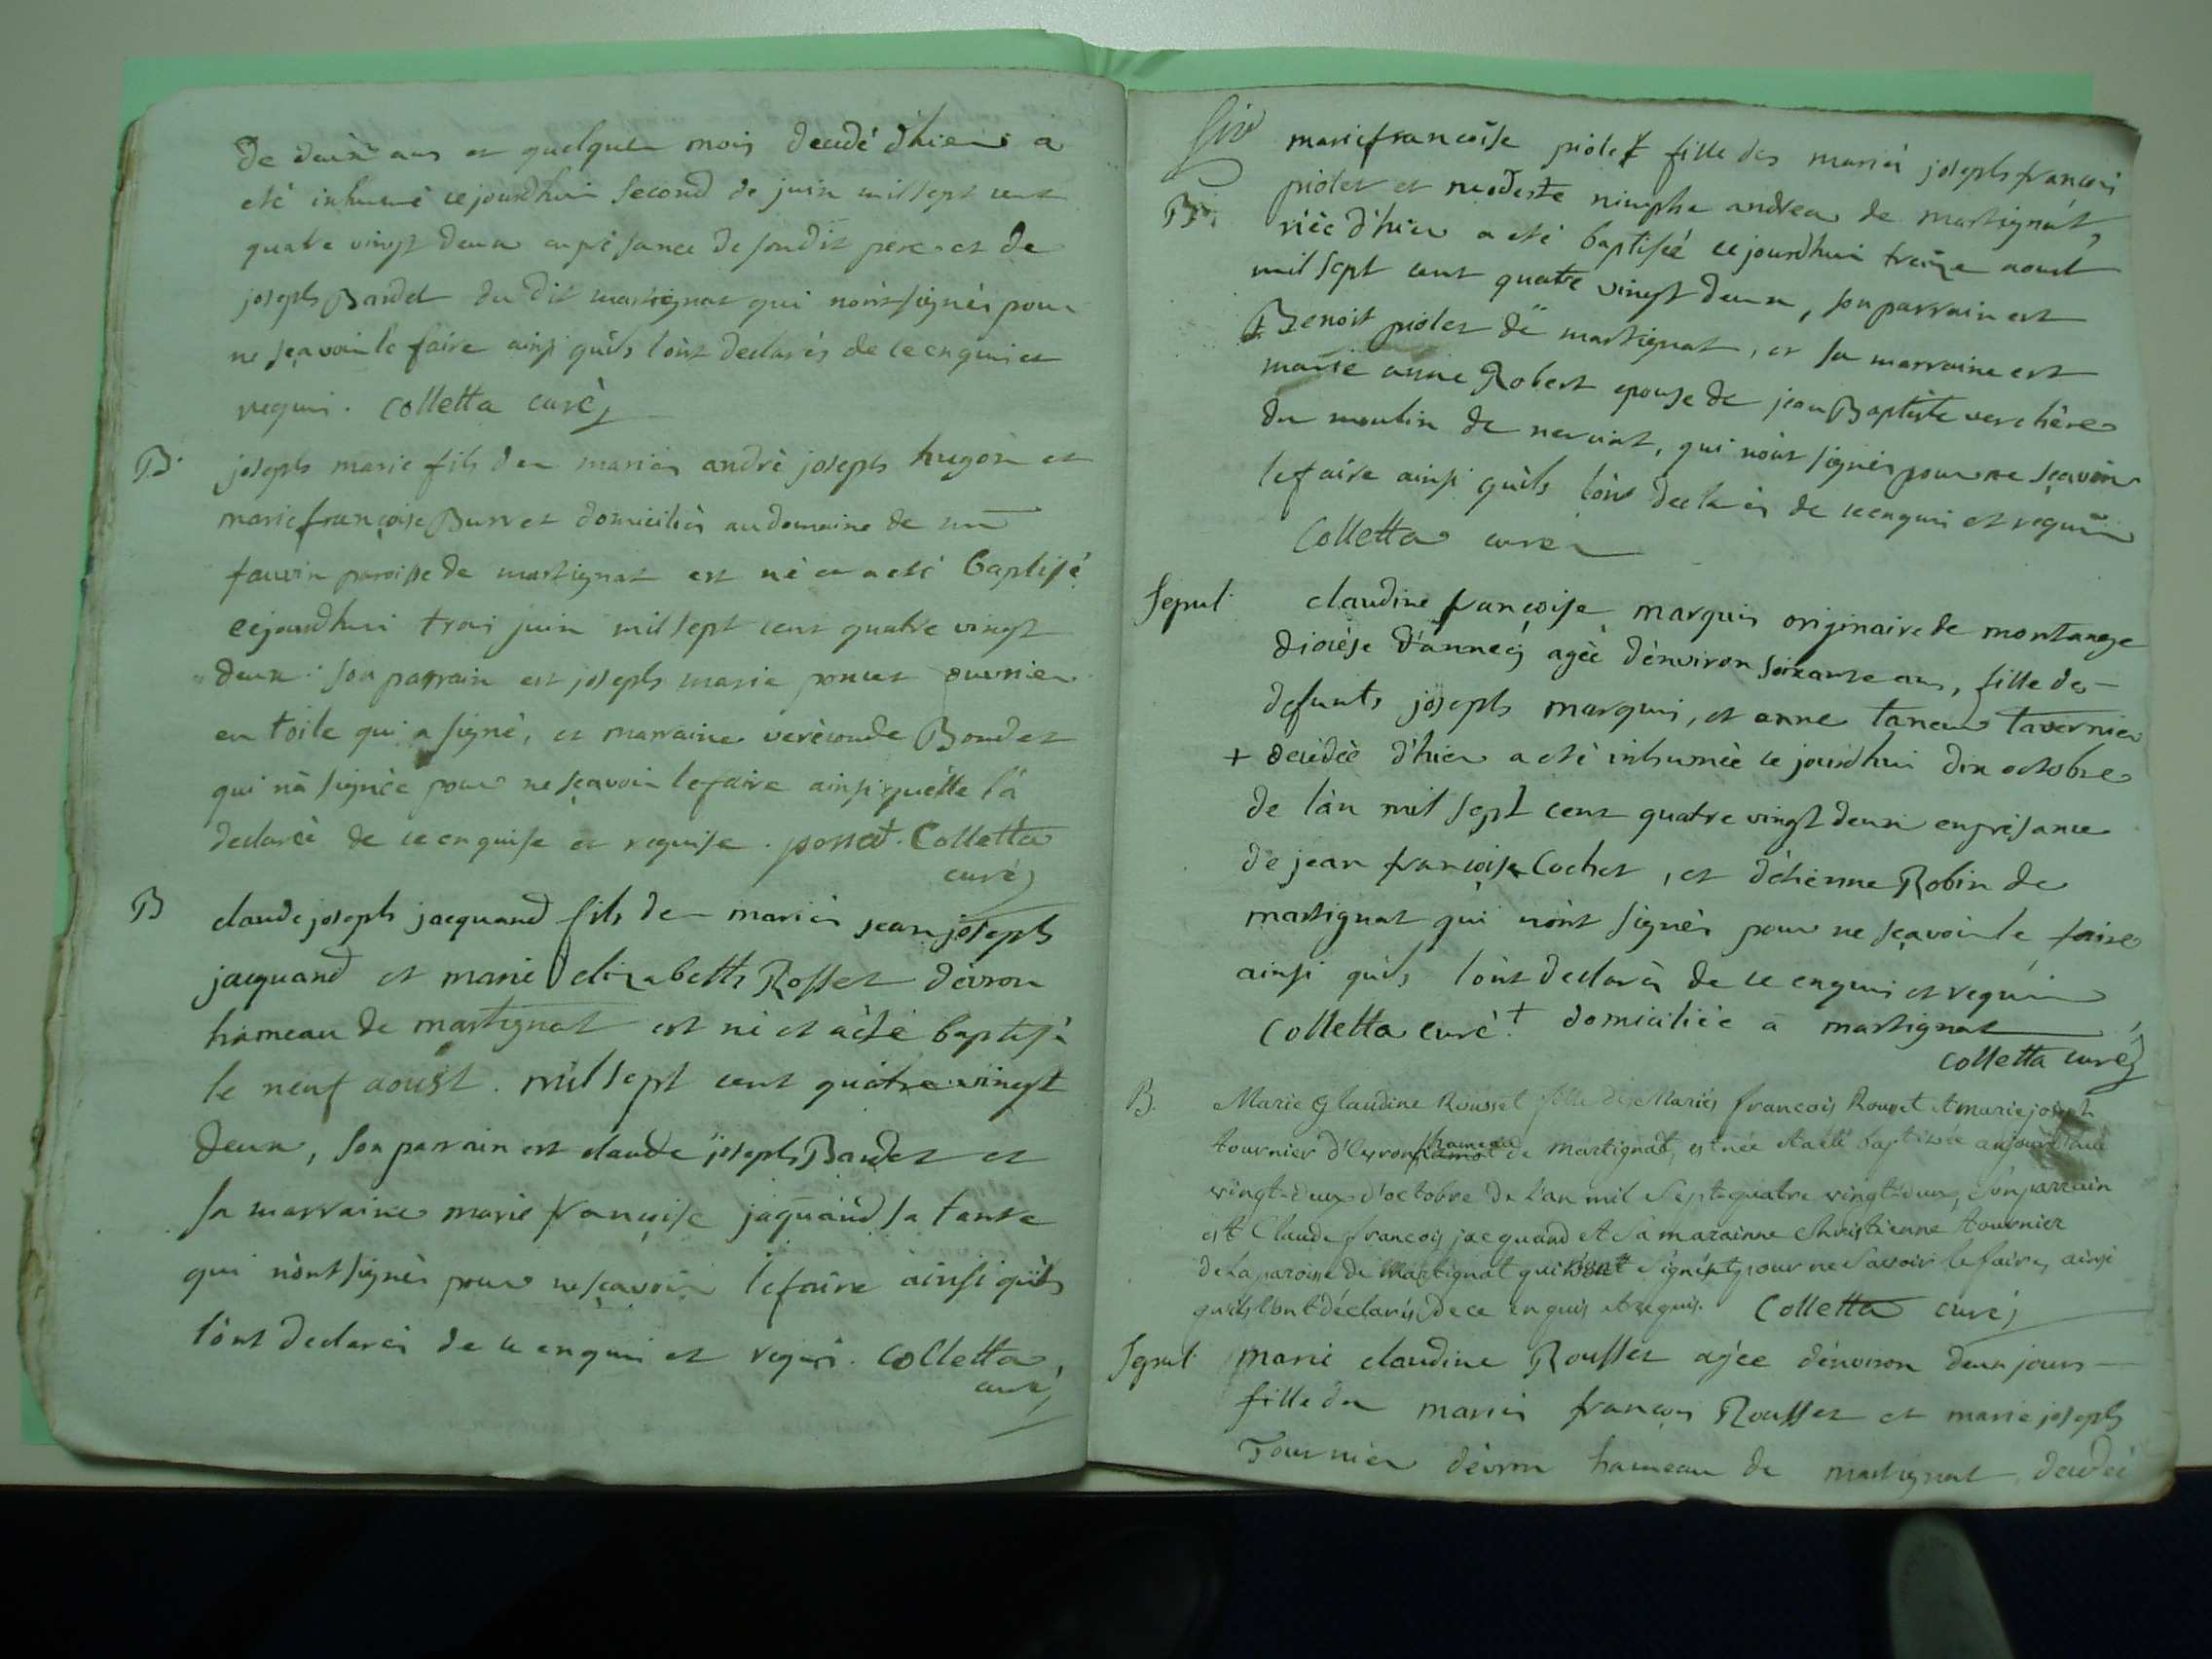 de deux ans et quelques mois decedé d'hier a
eté inhumé cejourdhui second de juin mil sept cent
quatre vingt deux en présance de son dit pere et de
joseph Bandet du dit martignat qui n'ont signés pour
ne sçavoir le faire ainsi qu'ils l'ont declarés de ce enquis et
requis. Colletta curé
B. joseph marie fils des mariés andré joseph hugon et
marie françoise Burret domiciliés au domaine de
fauvin paroisse de martignat est né et a eté baptisé
cejourdhui trois juin mil sept cent quatre vingt
deux. son parrain est joseph marie poncet ouvrier
en toile qui a signé, et marraine Boudet
qui n'a signée pour ne sçavoir le faire ainsi qu'elle l'a
declaré de ce enquise et requise. ponçet. Colletta
curé
B claude joseph jacquand fils de mariés jean joseph
jacquand et marie elizabeth Rosset d'evron
hameau de martignat est né et a eté baptisé
le neuf aoust. mil sept cent quatre vingt
deux, son parrain est claude joseph Baudet et
sa marraine marie françoise jaquand sa tante
qui n'ont signés pour ne sçavoir le faire ainsi qu'ils
l'ont declarés de ce enquis et requis. Colletta,
curé
marie françoise piolet fille des mariés joseph françois
B. piolet et modeste nimphe andrea de martignat,
née d'hier a eté baptisée cejourdhui treize aoust
mil sept cent quatre vingt deux, son parrain est
Benoit piolet de martignat, et sa marraine est
marie anne Robert epouse de jean Baptiste verchère
du moulin de, qui n'ont signés pour ne sçavoir
le faire ainsi qu'ils l'ont declarés de ce enquis et requis
Colletta curé
sepul. claudine françoise marquis originaire de montange
diocèse d'annecy agée d'environ soixante ans, fille des
defunts joseph marquis, et anne taneur tavernier
+ decedée d'hier a eté inhumée ce jourdhui dix octobre
de l'an mil sept cent quatre vingt deux en présance
de jean françoise Cochet, et d'etienne Robin de
martignat qui n'ont signés pour ne sçavoir le faire
ainsi qu'ils l'ont declarés de ce enquis et requis
Colletta curé + domiciliée a martignat
Colletta curé
B. Marie Glaudine Rousset fille des Mariés francois Rousset et marie joseph
tournier d'Evron hameau de Martignat, est née et a eté baptisée aujourd'hui
vingt-deux d'octobre de l'an mil Sept quatre vingt-deux, son parrain
est Claude francois jacquand et Sa marainne Christienne tournier
de La paroisse de Martignat qui n'ont Signés pour ne Savoir le faire, ainsi
qu'ils l'ont déclarés de ce enquis et requis. Colletta curé
Sepul marie claudine Rousset agée d'environ deux jours
fille des mariés françois Rousset et marie joseph
Tournier d'evron hameau de martignat, decedée